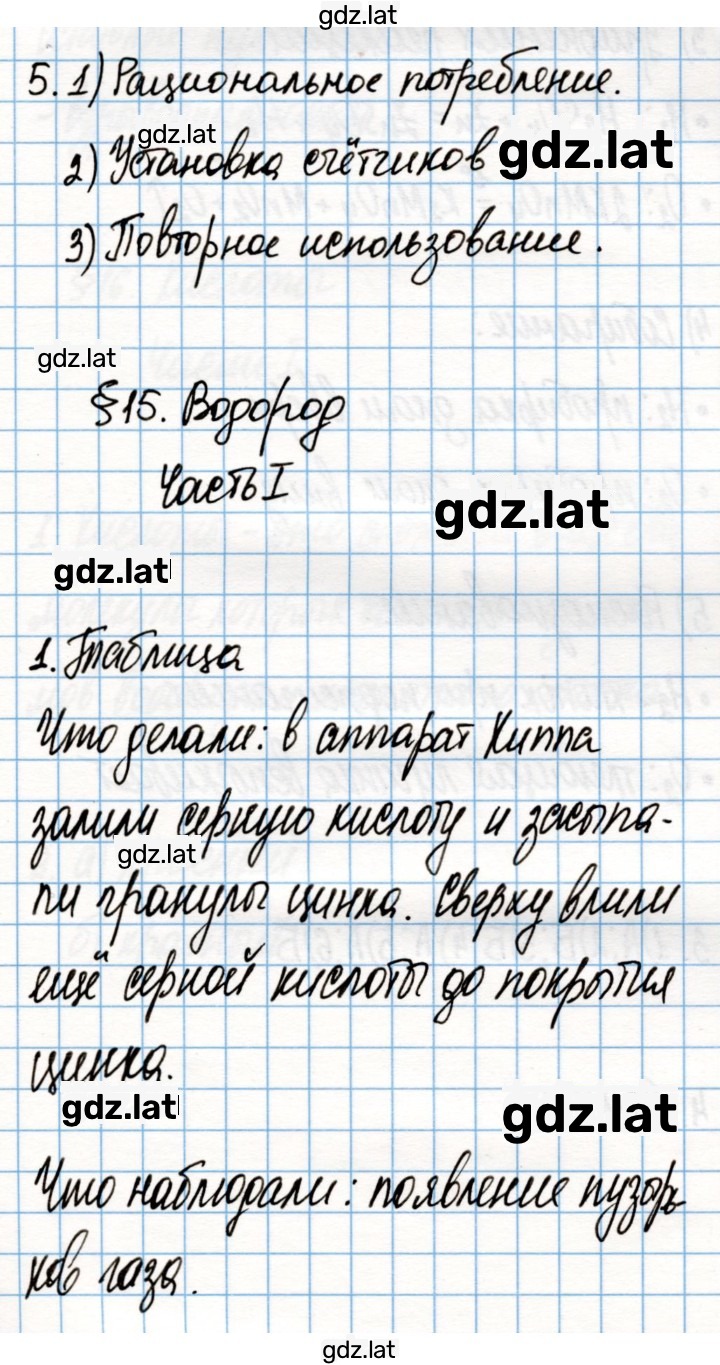 gdz.lat
5. 1) Рациональное потребление.
gdz.lat
2) Установка счётчиков gdz.lat
3) Повторное использование.
gdz.lat
§15. Водород
Часть I
gdz.lat
gdz.lat
1. Таблица
Что делали: в аппарат Киппа
залили серную кислоту и засыпа-
gdz.lat
ли гранулы цинка. Сверху влили
ещё серной кислоты до покрытия
цинка.
gdz.lat
gdz.lat
Что наблюдали: появление пузырь-
ков газа.
gdz.lat